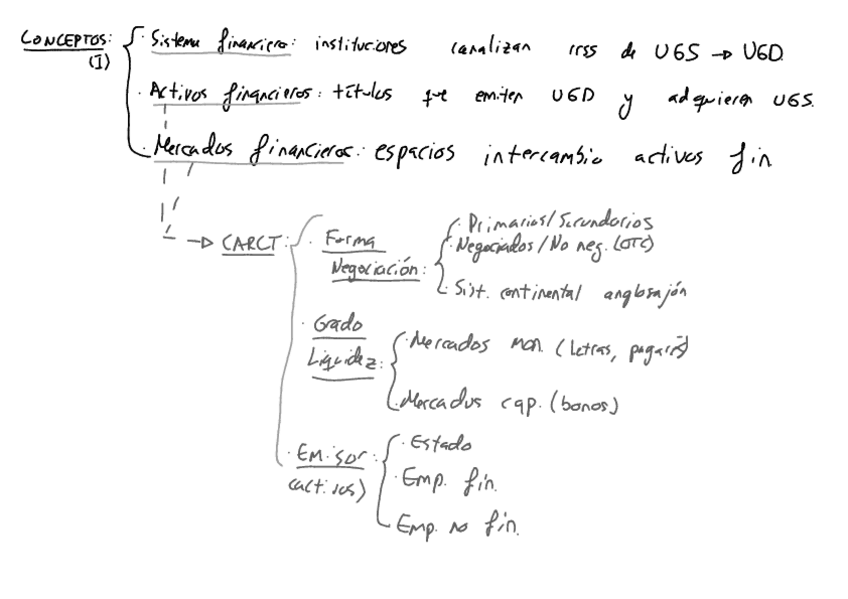 CONCEPTOS: · Sistema financiero: instituciones canalizan rrss de UGS → UGD
(I)
· Activos financieros: títulos que emiten UGD y adquieren UGS.
· Mercados financieros: espacios intercambio activos fin
→ CARCT: · Forma Negociación:
· Primarios/Secundarios
· Negociados/No neg. (OTC)
· Sist. continental anglosajón
· Grado Liquidez:
· Mercados mon. (letras, pagarés)
· Mercados cap. (bonos)
· Emisor:
(activos)
· Estado
· Emp. fin.
· Emp. no fin.